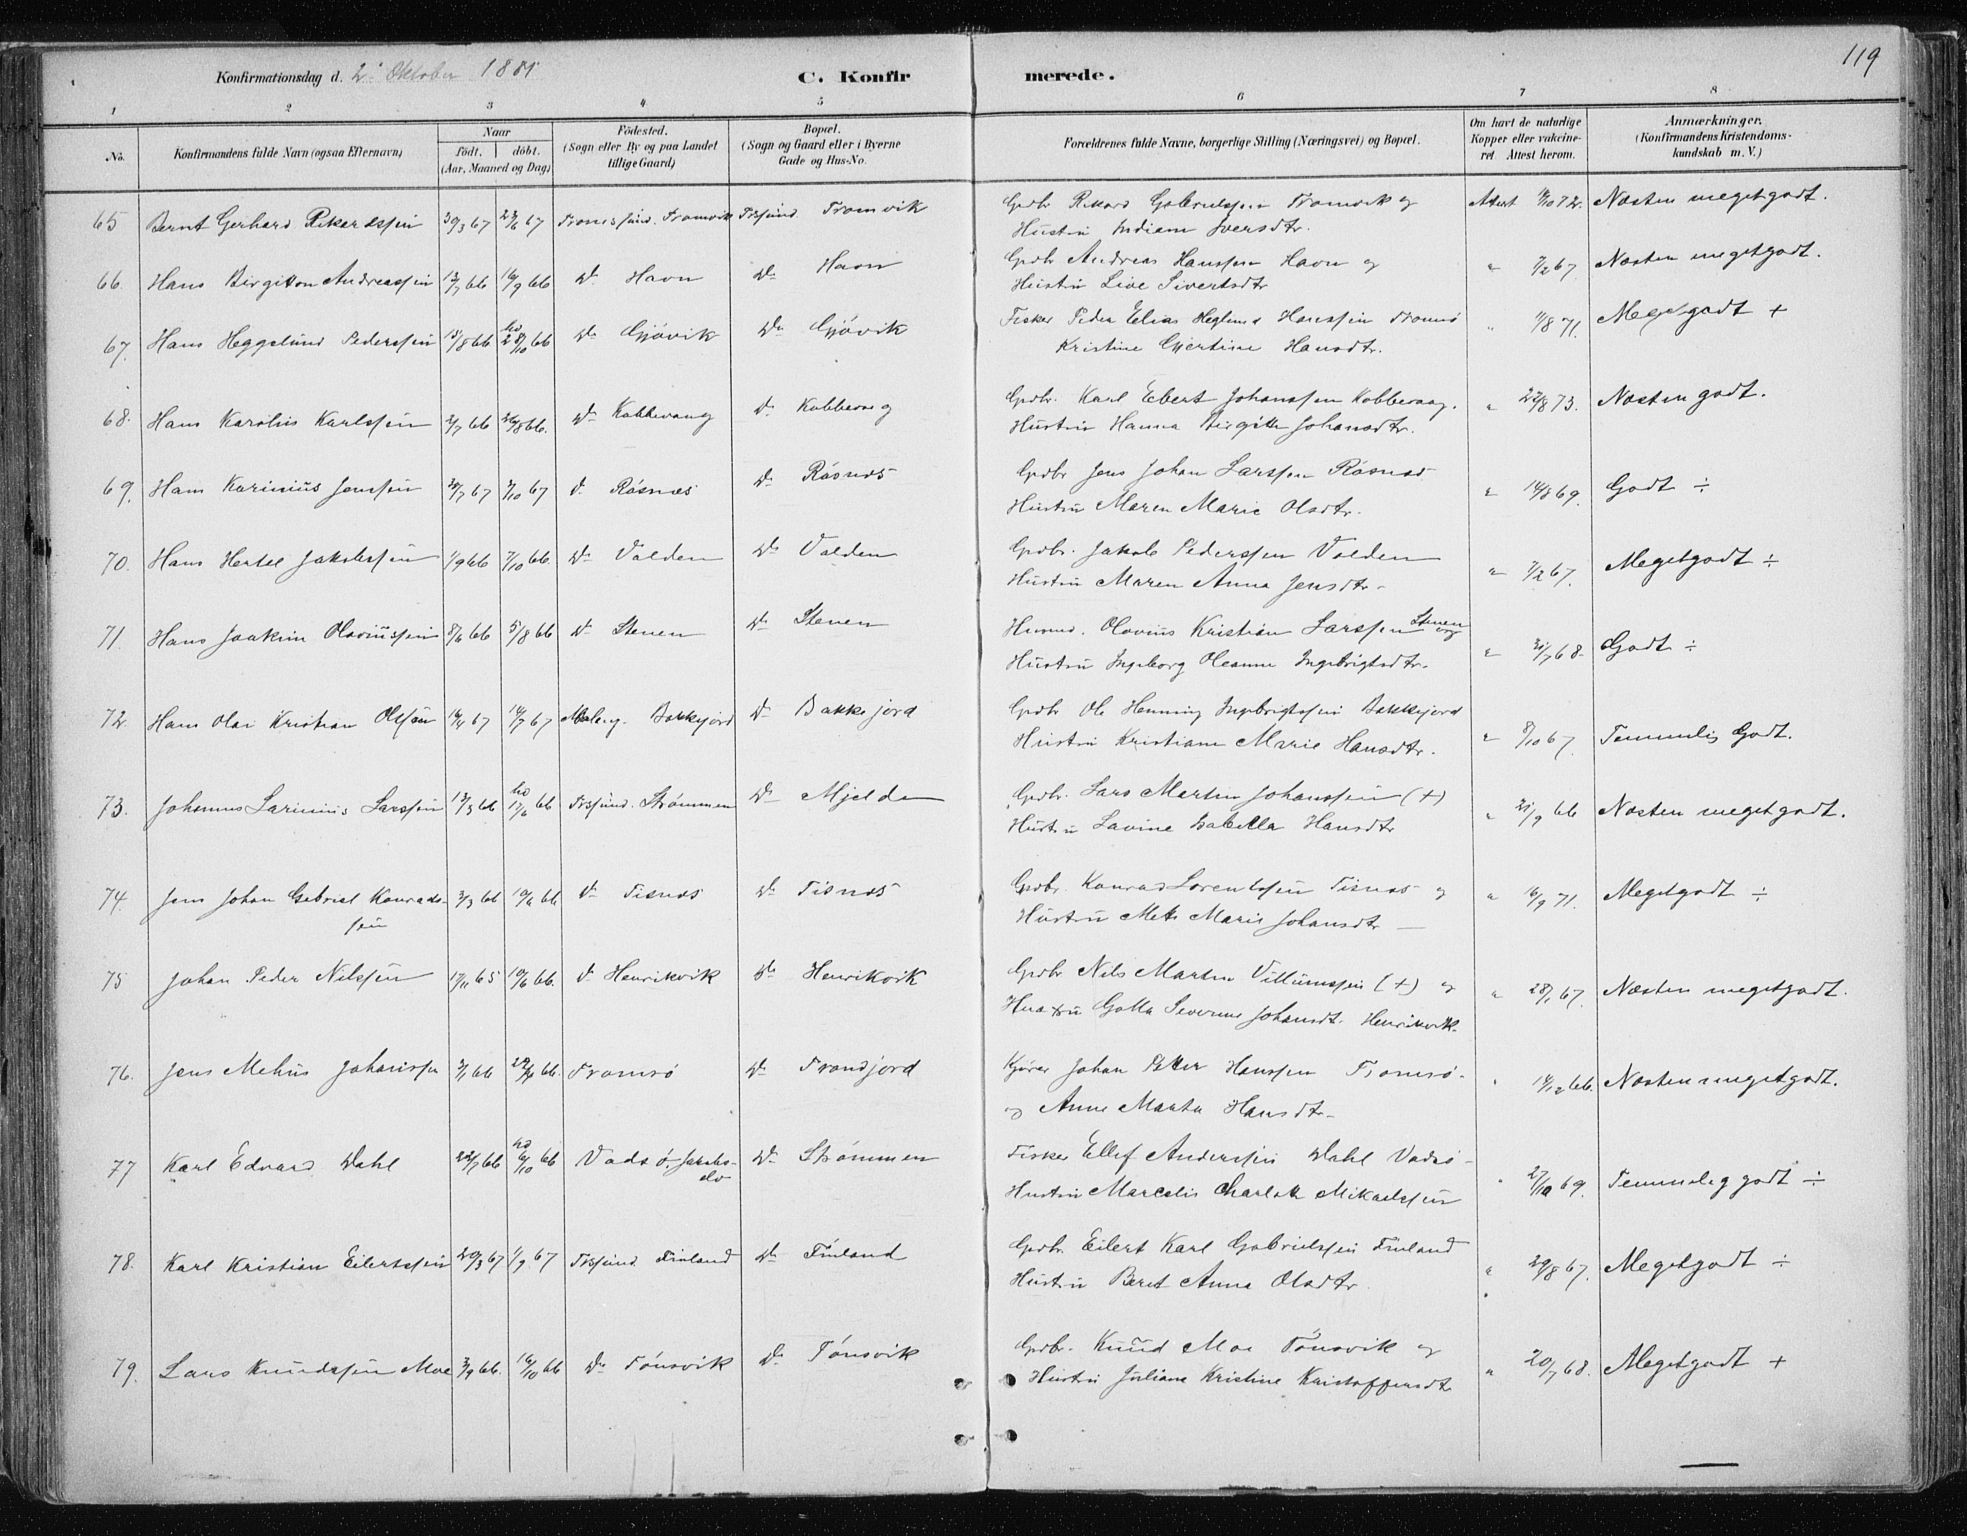 119
Konfirmationsdag d. 2. Oktober 1881
C. Konfir merede.
1 2 3 4 5 6 7 8
No. Konfirmandens fulde Navn (ogsaa Efternavn) Naar født. døbt. (Aar, Maaned og Dag) Fødested. (Sogn eller By og paa Landet tillige Gaard) Bopæl. (Sogn og Gaard eller i Byerne Gade og Hus-No. Forældrenes fulde Navne, borgerlige Stilling (Næringsvei) og Bopæl. Om havt de naturlige Kopper eller vakcineret. Attest herom. Anmærkninger. (Konfirmandens Kristendomskundskab m. V.)
65 Bernt Gerhard Rikardssen 30/3 67 23/6 67 Tromsøsund. Tromvik Trsund Tromvik Grdbr Rikard Gabrielssen Tromvik og Attest 18/10 72. Næsten meget godt.
Hustru Indiane Iversdtr.
66. Hans Birgithon Andreassen 13/7 66 16/9 66 Do Havn Do Havn Grdbr Andreas Hanssen Havn og " 7/2 67 Næsten meget godt.
Hustru Live Sivertsdtr
67. Hans Heggelund Pederssen 15/8 66 28/10 66 Do Gjövik Do Gjövik Fisker Peder Elias Heglund Hanssen Tromsø " 11/8 71. Meget godt +
Kristine Gjertine Hansdtr.
68. Hans Karolius Karlssen 2/7 66 26/8 66. Do Kobbevaag Do Kobbevaag Grdbr. Karl Ebert Johanssen Kobbevaag. " 22/8 73. Næsten godt.
Hustru Hanna Birgitte Johansdtr.
69. Hans Karinius Jenssen 20/7 67 7/10 67 Do Rösnæs Do Rösnæs Grdbr Jens Johan Larssen Rösnæs " 14/8 69. Godt ÷
Hustru Maren Marie Olsdtr.
70. Hans Hertel Jakobssen 1/9 66 7/10 66. Do Valden Do Valden Grdbr. Jakob Pederssen Valden " 7/2 67. Meget godt ÷
Hustru Maren Anna Jensdtr
71. Hans Joakim Olaviussen 8/6 66 5/8 66 Do Stenen Do Stenen Husmd. Olavius Kristian Larssen Stenen og " 31/7 68. Godt ÷
Hustru Ingeborg Oleanna Ingebrigtsdtr.
72 Hans Olai Kristian Olssen 16/4 67 14/7 67 Maleng. Bakkejord Do Bakkejord Grdbr Ole Henning Ingebrigtssen Bakkejord " 8/10 67. Temmelig Godt.
Hustru Kristiane Marie Hansdtr.
73. Johannes Larinius Larssen 13/3 66 17/6 66 Trsund. Strømmen Do Mjelde Grdbr. Lars Martin Johanssen (+) " 21/9 66 Næsten meget godt.
Hustru Lavine Isabella Hansdtr
74. Jens Johan Gabriel Konrads- 3/3 66 10/6 66 Do Tisnæs Do Tisnæs Grdbr. Konrad Lorentssen Tisnæs og " 16/9 71. Meget godt ÷
sen Hustru Mete Marie Johansdtr
75 Johan Peder Nilssen 17/11 65 10/6 66. Do Henrikvik Do Henrikvik Grdbr Nils Martin Villumssen (+) og " 28/1 67. Næsten meget godt.
Hustru Golla Severine Johansdt. Henrikvik.
76. Jens Mehus Johanssen 3/1 66 Tromsø Do Tronjord Kjører Johan Peter Hanssen Tromsø. " 14/12 66. Næsten meget godt.
og Anne Marta Hansdtr
77 Karl Edvard Dahl 22/7 66 6/10 66 Vadsø. Jakobs- Do Strømmen Fisker Ellef Anderssen Dahl Vadsø " 27/10 69. Temmelig godt ÷
elv Hustru Marcelis Charlotte Mikaelssen
78. Karl Kristian Eilertssen 20/3 67 1/9 67 Trsund Finland Do Finland Grdbr. Eilert Karl Gabrielssen Finland " 29/8 67. Meget godt ÷
Hustru Beret Anna Olsdtr.
79. Lars Knudssen Moe 3/9 66. 16/10 66 Do Tönsvik Do Tönsvik Grdbr. Knud Moe Tönsvik og " 20/7 68. Meget godt +
Hustru Juliane Kristine Kristoffersdtr